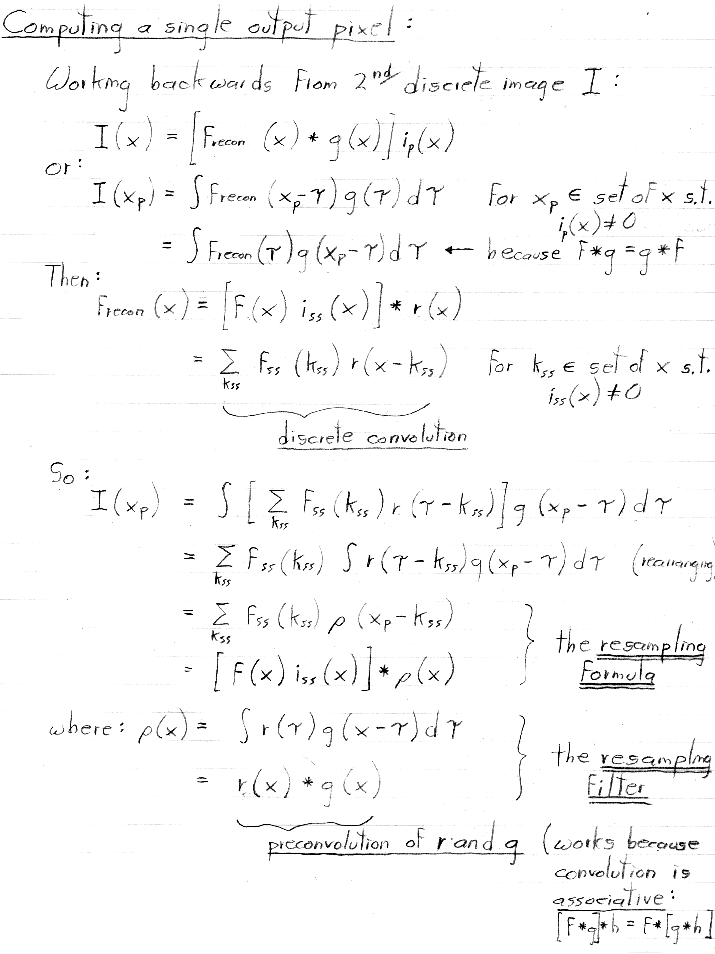 Computing a single output pixel:
Working backwards from 2nd discrete image I:
I(x) = [Frecon (x) * g(x)] ip(x)
or:
I(xp) = ∫ Frecon (xp-τ) g(τ) dτ   for xp ∈ set of x s.t.
ip(x) ≠ 0
= ∫ Frecon (τ) g (xp-τ) dτ ← because f*g = g*f
Then:
Frecon (x) = [F(x) iss (x)] * r(x)
= Σkss Fss (kss) r(x-kss)   for kss ∈ set of x s.t.
iss(x) ≠ 0
discrete convolution
So:
I(xp) = ∫ [Σkss Fss (kss) r (τ-kss)] g (xp-τ) dτ
= Σkss Fss (kss) ∫ r(τ-kss) g(xp-τ) dτ (rearranging
= Σkss Fss (kss) ρ (xp-kss)
= [F(x) iss (x)] * ρ(x)
} the resampling
formula
where: ρ(x) = ∫ r(τ) g (x-τ) dτ
= r(x) * g(x)
} the resamplng
filter
preconvolution of r and g (works because
convolution is
associative:
[F*g]*h = F*[g*h]